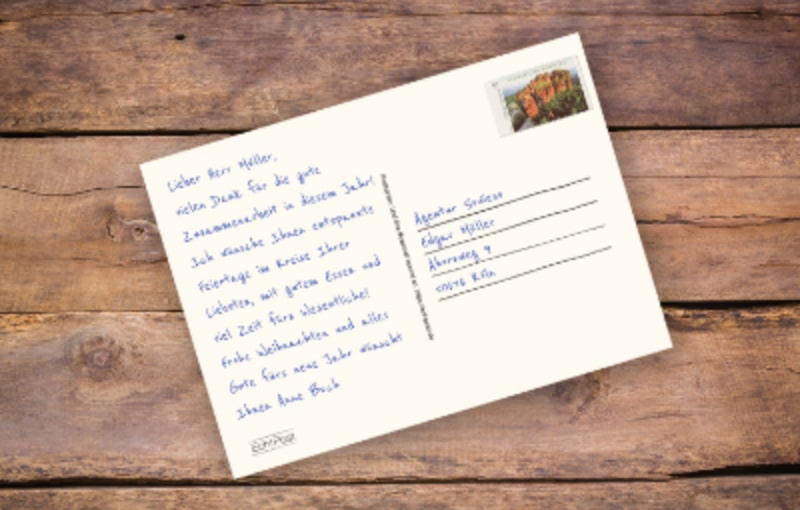 Lieber Herr Müller,
vielen Dank für die gute
Zusammenarbeit in diesem Jahr!
Ich wünsche Ihnen entspannte
Feiertage im Kreise Ihrer
Liebsten, mit gutem Essen und
viel Zeit fürs Wesentliche!
Frohe Weihnachten und alles
Gute fürs neue Jahr wünscht
Ihnen Anne Buch
EchtPost
Agentur
Edgar Müller
Ahornweg 9
Köln